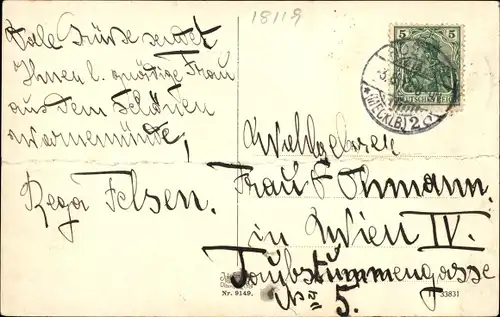 Viele Grüße sendet
Ihnen l. gnädige Frau
aus dem schönen
Warnemünde,
Rega Felsen.
18119
5 5
DEUTSCHES REICH
(MECKLB) 2
Wohlgeboren
Frau E Ohmann.
in Wien IV.
Taubstummengasse
No 5.
Nr. 9149.
33831